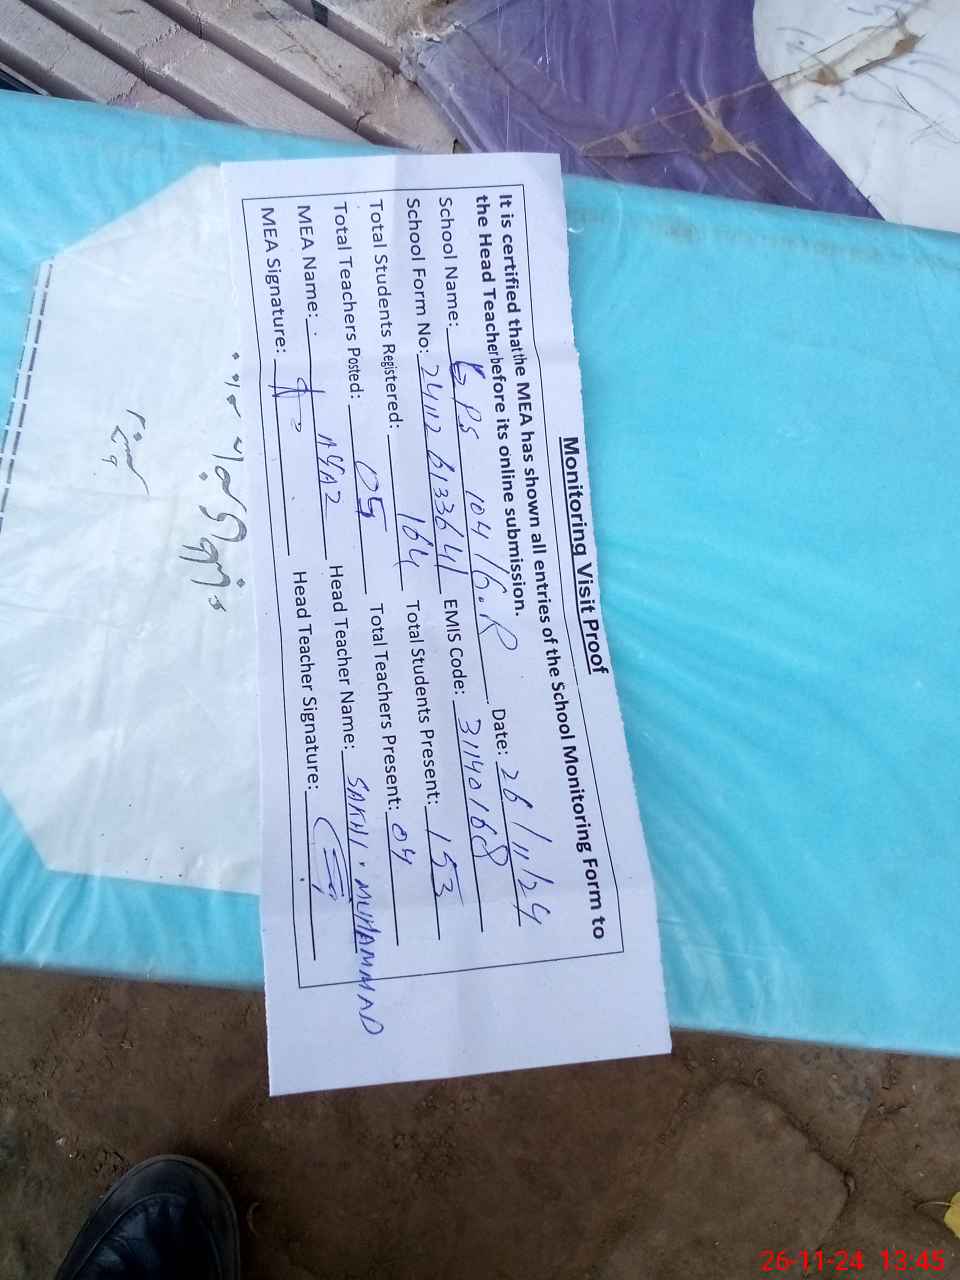 Monitoring Visit Proof
It is certified that the MEA has shown all entries of the School Monitoring Form to
the Head Teacher before its online submission.
School Name: GPS 104/6.R Date: 26/11/24
School Form No: 241126133641 EMIS Code: 31140168
Total Students Registered: 164 Total Students Present: 153
Total Teachers Posted: 05 Total Teachers Present: 04
MEA Name: AYAZ Head Teacher Name: SAKHI MUHAMMAD
MEA Signature: Head Teacher Signature:
26-11-24 13:45